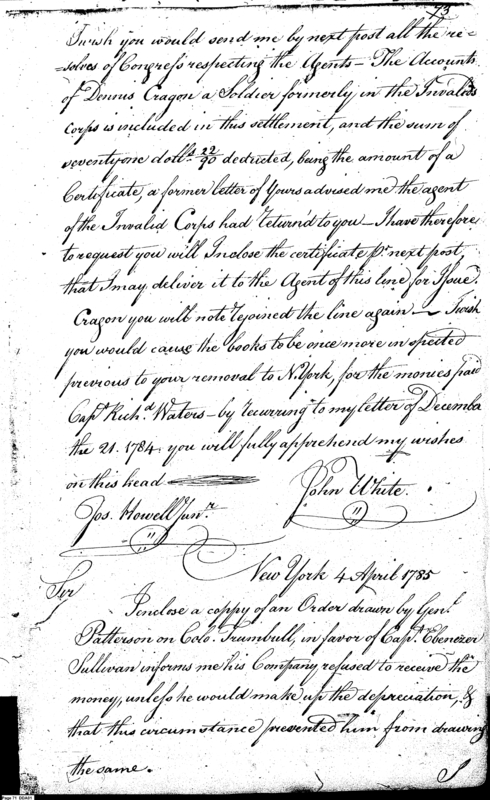 73
I wish you would send me by next post all the re-
-solves of Congress respecting the Agents - The Accounts
of Dennis Cragon a Soldier formerly in the Invalids
corps is included in this settlement, and the sum of
seventy one dolls. 22/90 deducted, being the amount of a
Certificate, a former letter of yours advised me the agent
of the Invalid Corps had return'd to you - I have therefore
to request you will Inclose the certificate pr. next post,
that I may deliver it to the Agent of this line for Issue.
Cragon you will note rejoined the line again - I wish
you would cause the books to be once more inspected
previous to your removal to N. York, for the monies paid
Capt. Richd. Waters - by recurring to my letter of December
the 21. 1784 you will fully apprehend my wishes
on this head
John White.
Jos. Howell Junr.
New York 4 April 1785
Sir
I enclose a coppy of an Order drawn by Genl.
Patterson on Colo. Trumbull, in favor of Capt. Ebenezer
Sullivan informs me his Company refused to receive the
money, unless he would make up the depreciation, &
that this circumstance prevented him from drawing
the same.
Page 71 BDA01